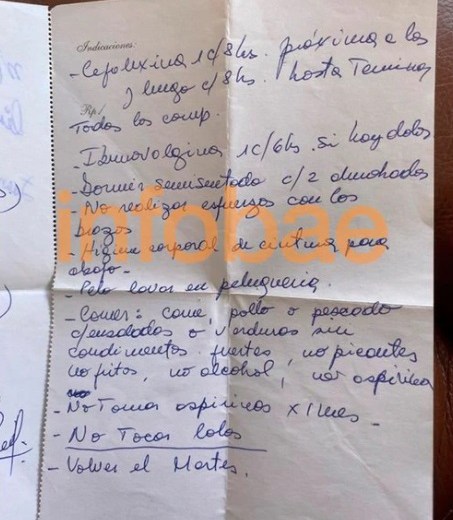 Indicaciones:
- Cefalexina 1c/8hs. próxima a las
) luego c/8hs. hasta Terminar
Rp./
Todos los comp.
- Ibunovalgina 1c/6hs. si hay dolor
- Dormir semisentada c/2 almohadas
- No realizar esfuerzos con los
brazos
- Higiene corporal de cintura para
abajo -
- Pelo lavar en peluquería.
- Comer: carne, pollo o pescado
c/ensaladas o verduras sin
condimentos fuertes, no picantes
no fritos, no alcohol, no aspirina
- No Tomar aspirinas x 1 mes -
- No Tocar lolas
- Volver el Martes.
infobae